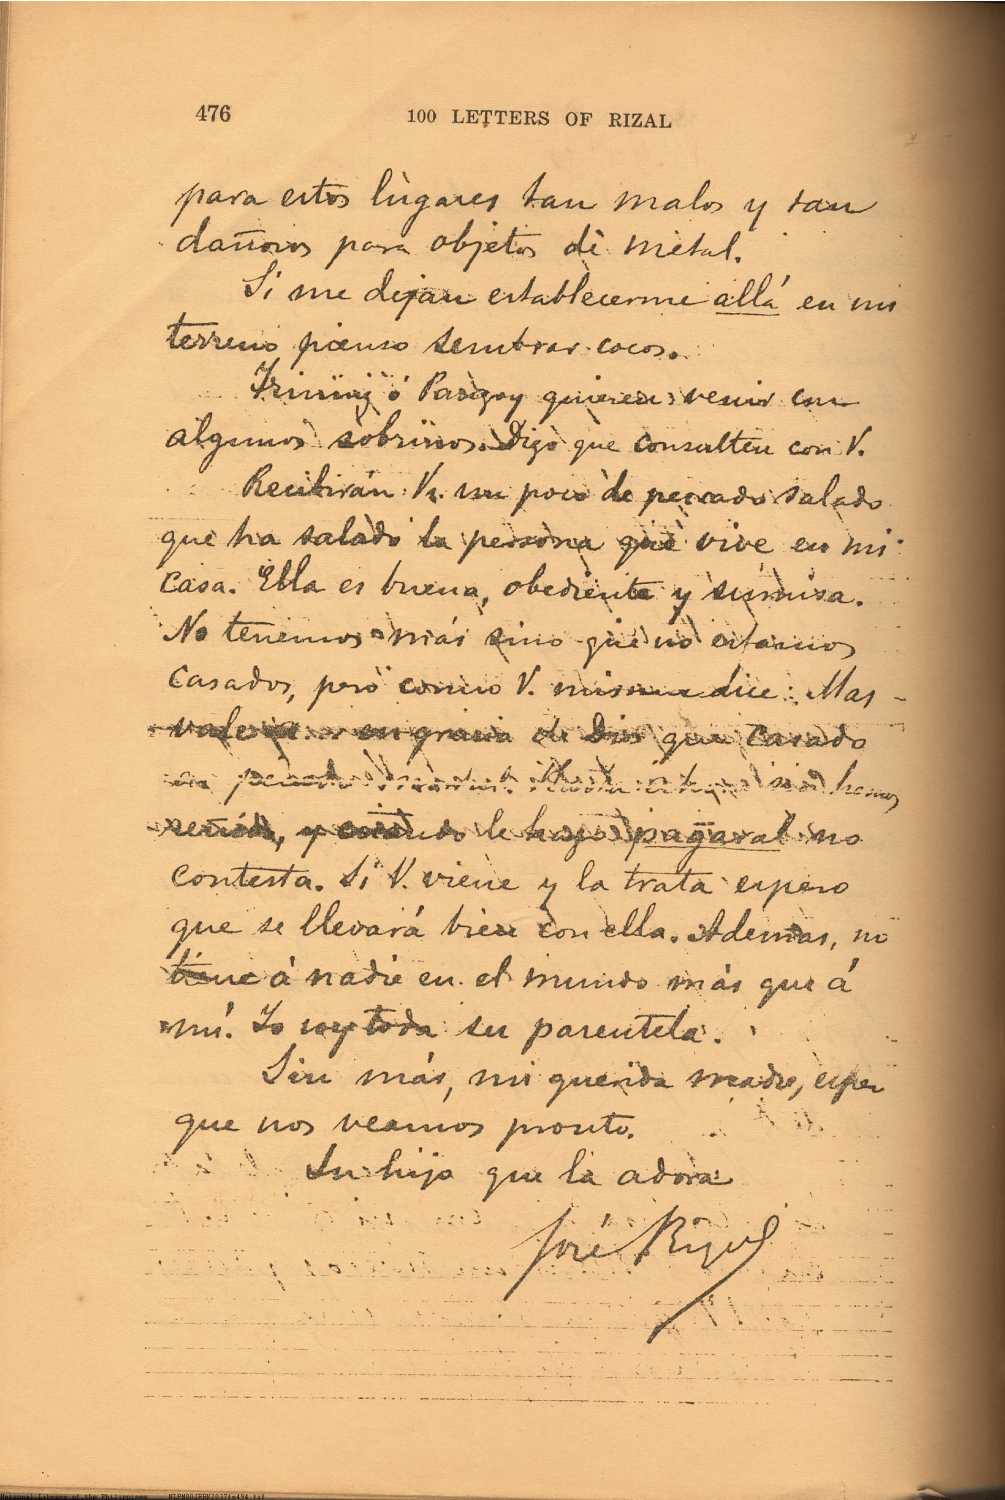 476 100 LETTERS OF RIZAL
para estos lugares tan malos y tan
dañosos para objetos de metal.
Si me dejan establecerme allá en mi
terreno pienso sembrar cocos.
Trining ó Pangoy quieren venir con
algunos sobrinos. Digo que consulten con V.
Recibirán Vs. un poco de pescado salado
que ha salado la persona que vive en mi
casa. Ella es buena, obediente y sumisa.
No tenemos más sino que no estamos
casados, pero como V. misma dice: Mas
vale en gracia de Dios que casado
en pecado mortal. Hasta ahora no hemos
reñido, y cuando le hago pangaral no
contesta. Si V. viene y la trata espero
que se llevará bien con ella. Ademas, no
tiene á nadie en el mundo más que á
mí. Yo soy toda su parentela.
Sin más, mi querida madre,
que nos veamos pronto.
Su hijo que la adora
José Rizal
National Library of the Philippines